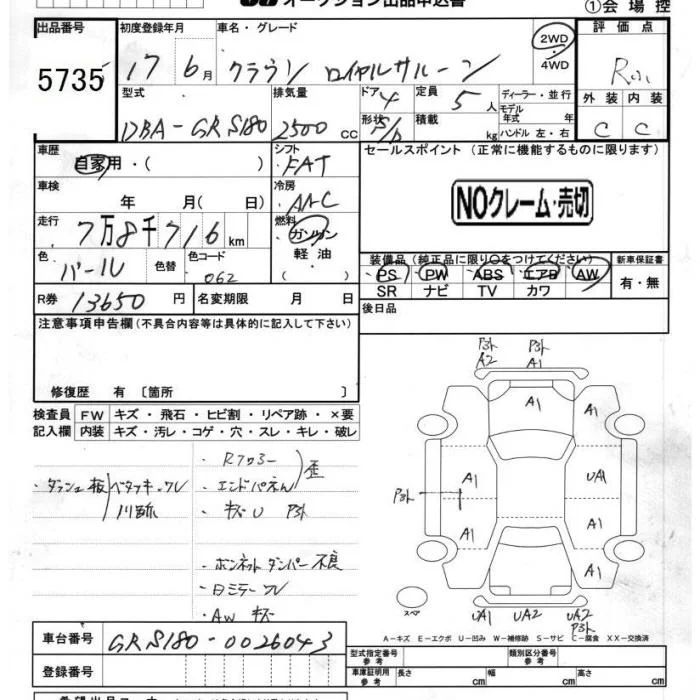 オークション出品申込書
①会場控
出品番号
5735
初度登録年月
17 6月
車名・グレード
クラウン ロイヤルサルーン
2WD
4WD
評価点
外装 内装
C C
型式
DBA-GRS180
排気量
2500 CC
ドア 4
形状 S/D
定員 5 人
積載 kg
ディーラー・並行
モデル年式 年
ハンドル 左・右
車歴
自家用・( )
シフト
FAT
セールスポイント(正常に機能するものに限ります)
NOクレーム・売切
車検
年 月( 日)
冷房
AAC
走行
7万8千716 km
燃料
ガソリン
軽油
( )
色
パール
色替
色コード
062
装備品(純正品に限り○をつけてください)
PS PW ABS エアB AW
SR ナビ TV カワ
新車保証書
有・無
R券 13650 円
名変期限 月 日
後日品
注意事項申告欄(不具合内容等は具体的に記入して下さい)
修復歴 有 〔箇所 〕
検査員記入欄
FW キズ・飛石・ヒビ割・リペア跡・×要
内装 キズ・汚レ・コゲ・穴・スレ・キレ・破レ
・ダッシュ板
・エンドパネル
歪
・キズU P3ト
・ボンネットダンパー不良
・AW キズ
P3ト P3ト
A2 A1
A1
A1
A1
A1
UA1
P3ト
A1
A1
A1
スペア
UA1 UA2 UA2
P3ト
A-キズ E-エクボ U-凹み W-補修跡 S-サビ C-腐食 XX-交換済
車台番号
GRS180-0026043
登録番号
型式指定番号 参考
類別区分番号 参考
車庫証明用 参考
長さ cm
幅 cm
高さ cm